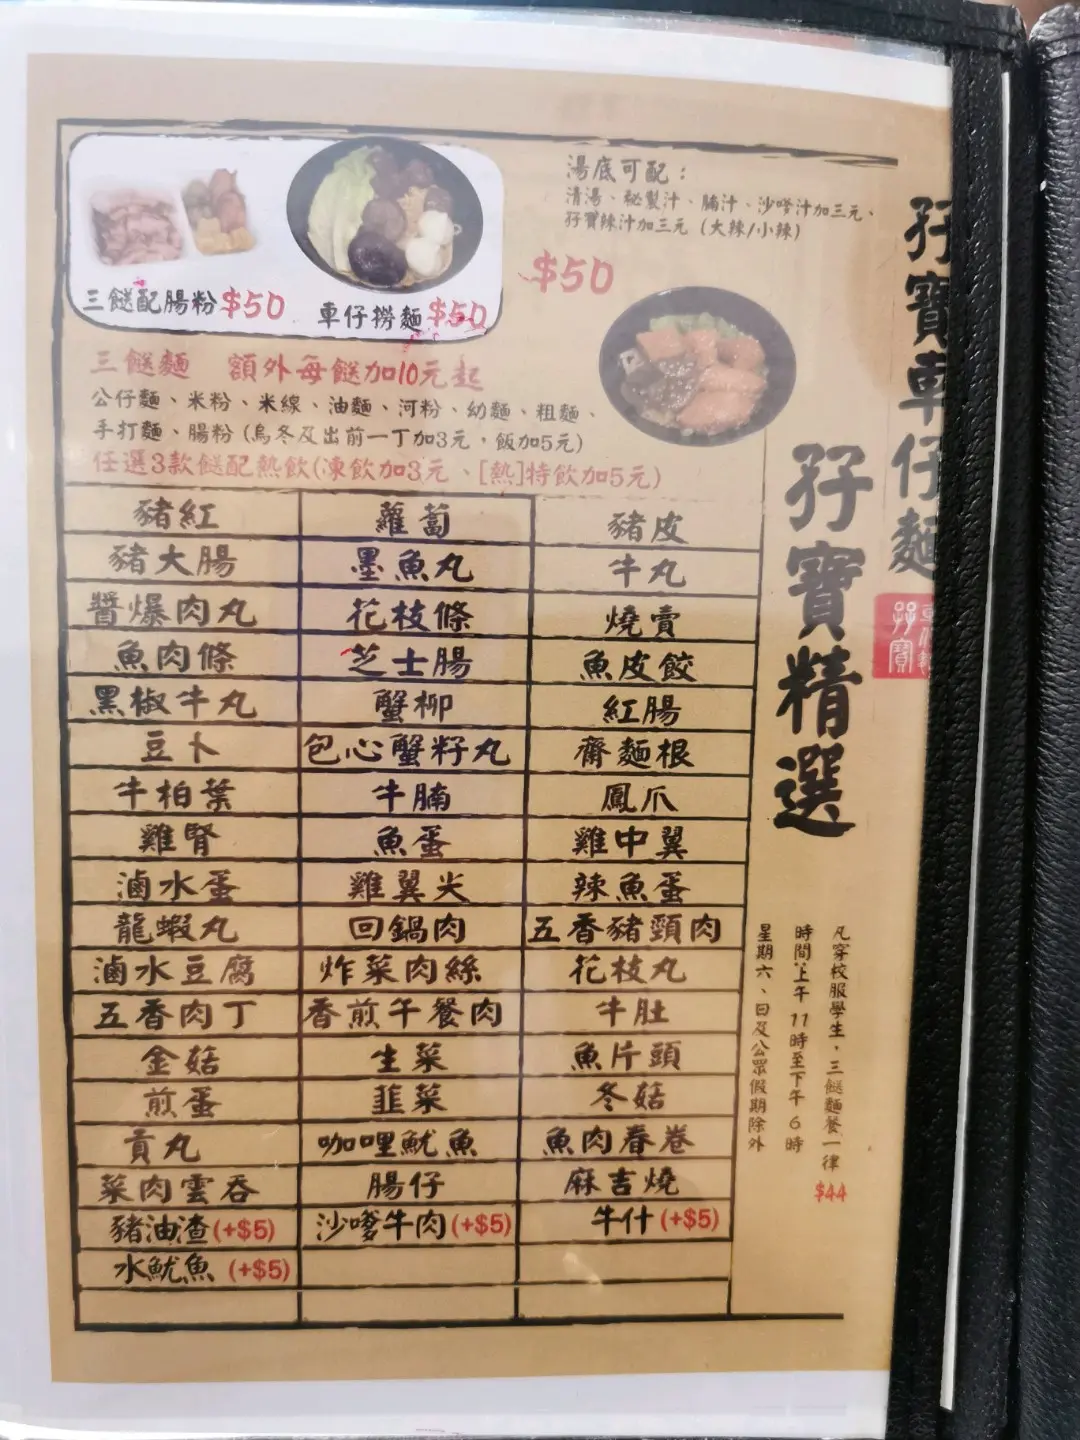 三餸配腸粉$50
車仔撈麵$50
湯底可配：
清湯、秘製汁、腩汁、沙嗲汁加三元、
孖寶辣汁加三元 (大辣/小辣)
$50
三餸麵 額外每餸加10元起
公仔麵、米粉、米線、油麵、河粉、幼麵、粗麵、
手打麵、腸粉 (烏冬及出前一丁加3元，飯加5元)
任選3款餸配熱飲(凍飲加3元、[熱]特飲加5元)
豬紅 蘿蔔 豬皮
豬大腸 墨魚丸 牛丸
醬爆肉丸 花枝條 燒賣
魚肉條 芝士腸 魚皮餃
黑椒牛丸 蟹柳 紅腸
豆卜 包心蟹籽丸 齋麵根
牛柏葉 牛腩 鳳爪
雞腎 魚蛋 雞中翼
滷水蛋 雞翼尖 辣魚蛋
龍蝦丸 回鍋肉 五香豬頸肉
滷水豆腐 炸菜肉絲 花枝丸
五香肉丁 香煎午餐肉 牛肚
金菇 生菜 魚片頭
煎蛋 韮菜 冬菇
貢丸 咖哩魷魚 魚肉春卷
菜肉雲吞 腸仔 麻吉燒
豬油渣(+$5) 沙嗲牛肉(+$5) 牛什(+$5)
水魷魚 (+$5)
孖寶車仔麵
孖寶
孖寶精選
凡穿校服學生，三餸麵餐一律
$44
時間上午11時至下午6時
星期六、日及公眾假期除外